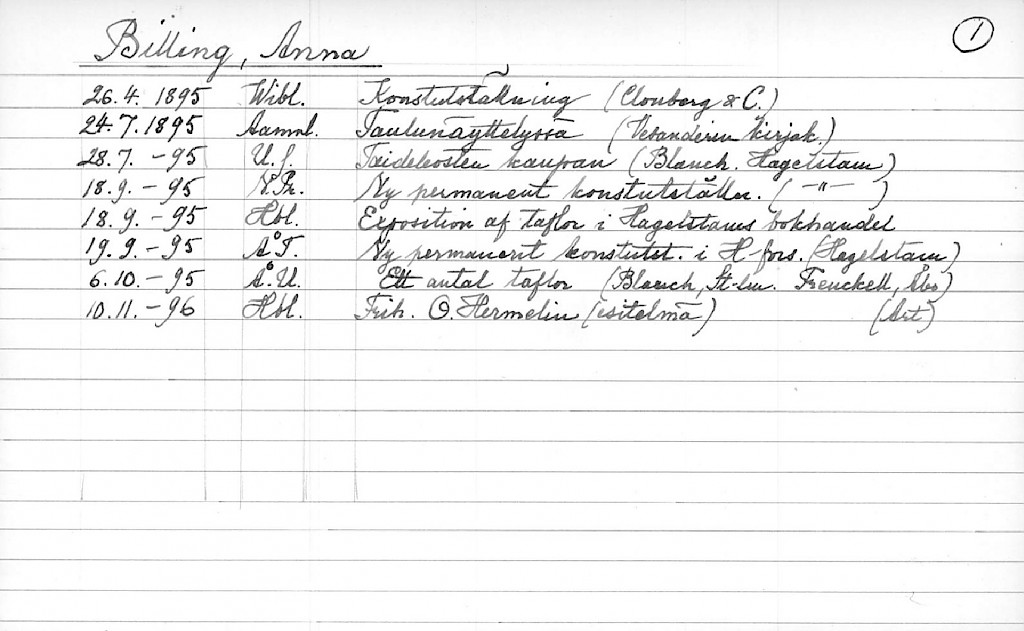 Billing, Anna ①
26.4. 1895 Wibl. Konstutställning (Clouberg & C.)
24.7.1895 Aamul. Taulunäyttelyssä (Vesanderin kirjak.)
28.7. -95 U.S. Taideteosten kaupan (Blanch. Hagelstam)
18.9. -95 N.Pr. Ny permanent konstutställn. ( -"- )
18.9. -95 Hbl. Exposition af taflor i Hagelstams bokhandel
19.9. -95 Å.T. Ny permanent konstutst. i H-fors. (Hagelstam)
6.10. -95 Å.U. Ett antal taflor (Blanch, St-lm. Frenckell, Åbo)
10.11. -96 Hbl. Frih. O. Hermelin (esitelmä) (Art)